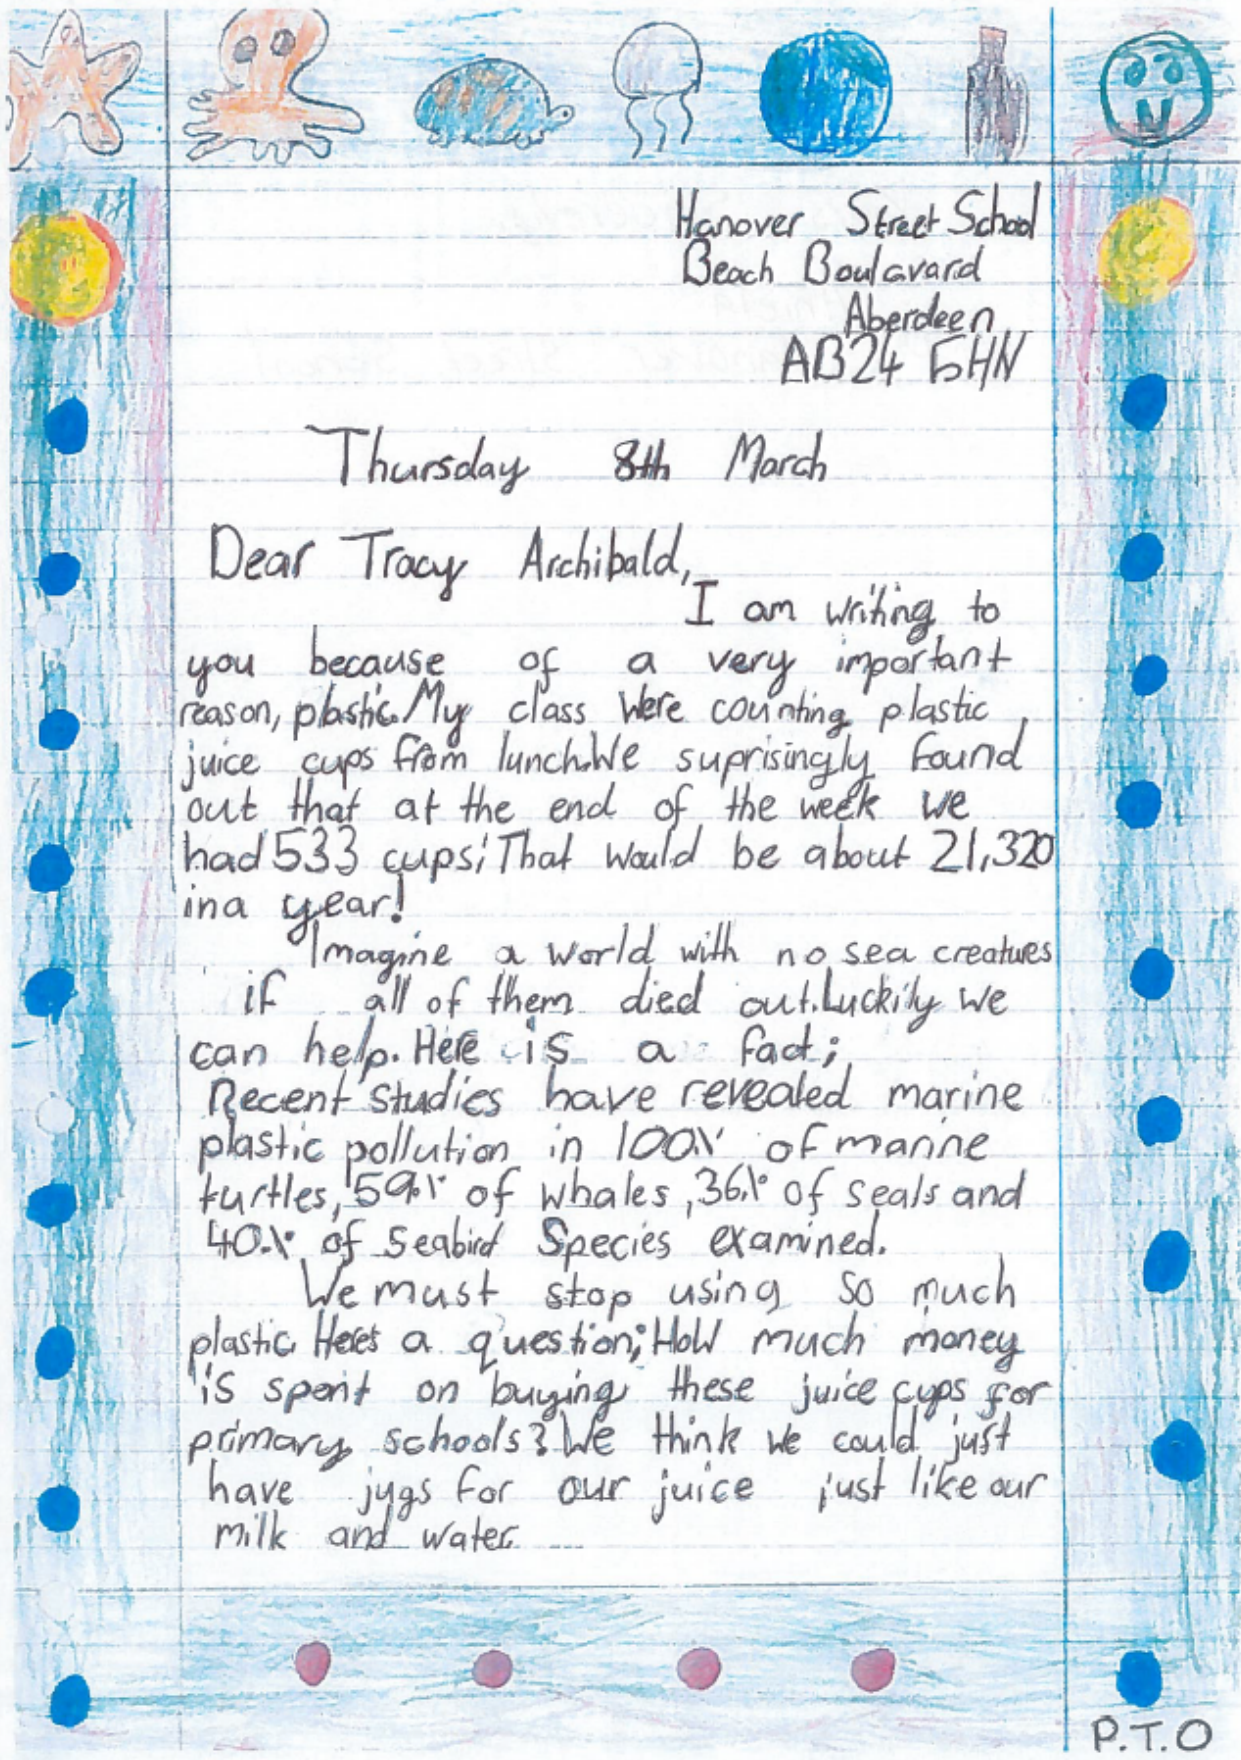 Hanover Street School
Beach Boulavard
Aberdeen
AB24 5HN
Thursday 8th March
Dear Tracy Archibald,
I am writing to
you because of a very important
reason, plastic. My class were counting plastic
juice cups from lunch. We suprisingly found
out that at the end of the week we
had 533 cups; That would be about 21,320
in a year!
Imagine a world with no sea creatures
if all of them died out. Luckily we
can help. Here is a fact;
Recent studies have revealed marine
plastic pollution in 100% of marine
turtles, 59% of whales, 36% of seals and
40% of seabird species examined.
We must stop using so much
plastic. Here's a question; How much money
is spent on buying these juice cups for
primary schools? We think we could just
have jugs for our juice just like our
milk and water.
P.T.O